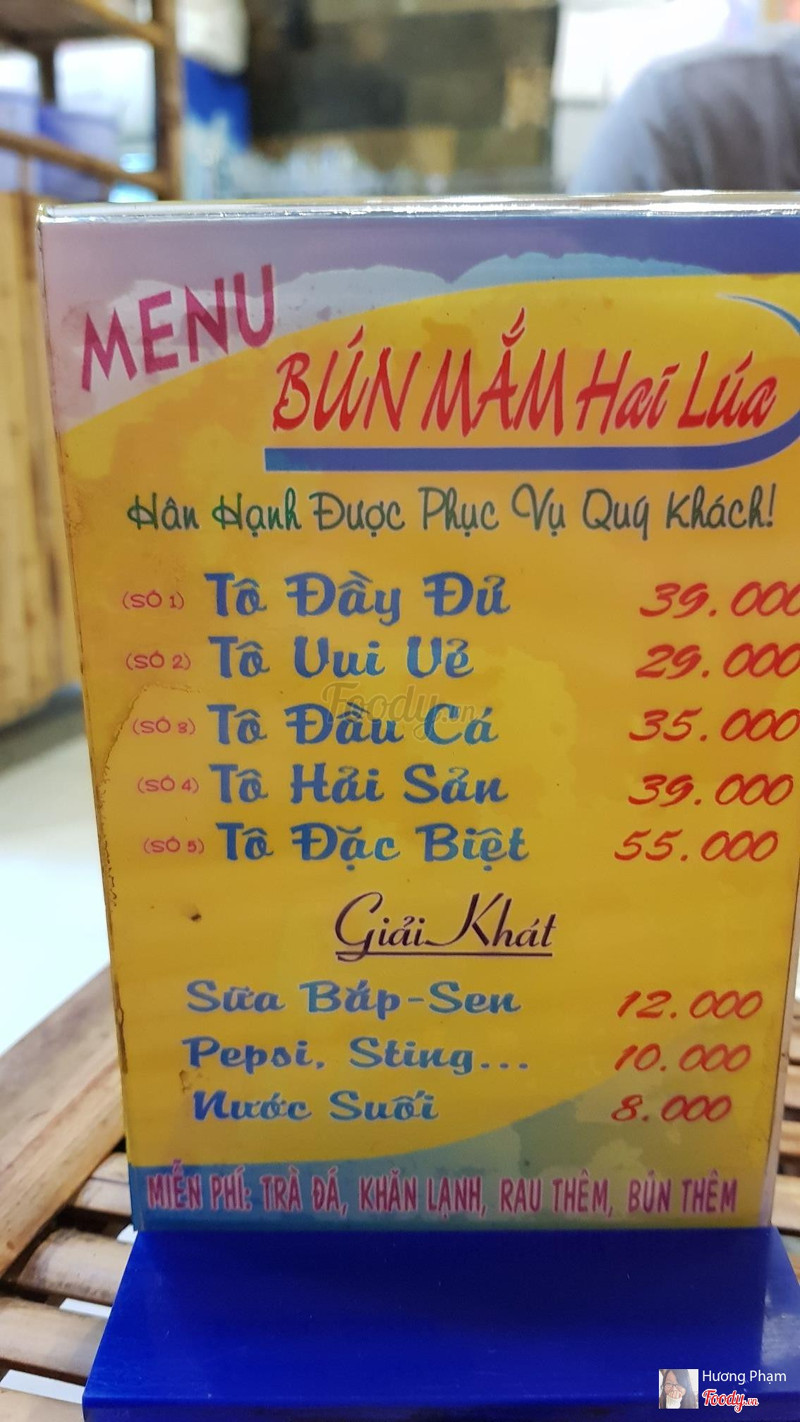 MENU
BÚN MẮM Hai Lúa
Hân Hạnh Được Phục Vụ Quý Khách!
(SỐ 1) Tô Đầy Đủ 39.000
(SỐ 2) Tô Vui Vẻ 29.000
(SỐ 3) Tô Đầu Cá 35.000
(SỐ 4) Tô Hải Sản 39.000
(SỐ 5) Tô Đặc Biệt 55.000
Giải Khát
Sữa Bắp-Sen 12.000
Pepsi, Sting... 10.000
Nước Suối 8.000
MIỄN PHÍ: TRÀ ĐÁ, KHĂN LẠNH, RAU THÊM, BÚN THÊM
Foody.vn
Hương Phạm
Foody.vn